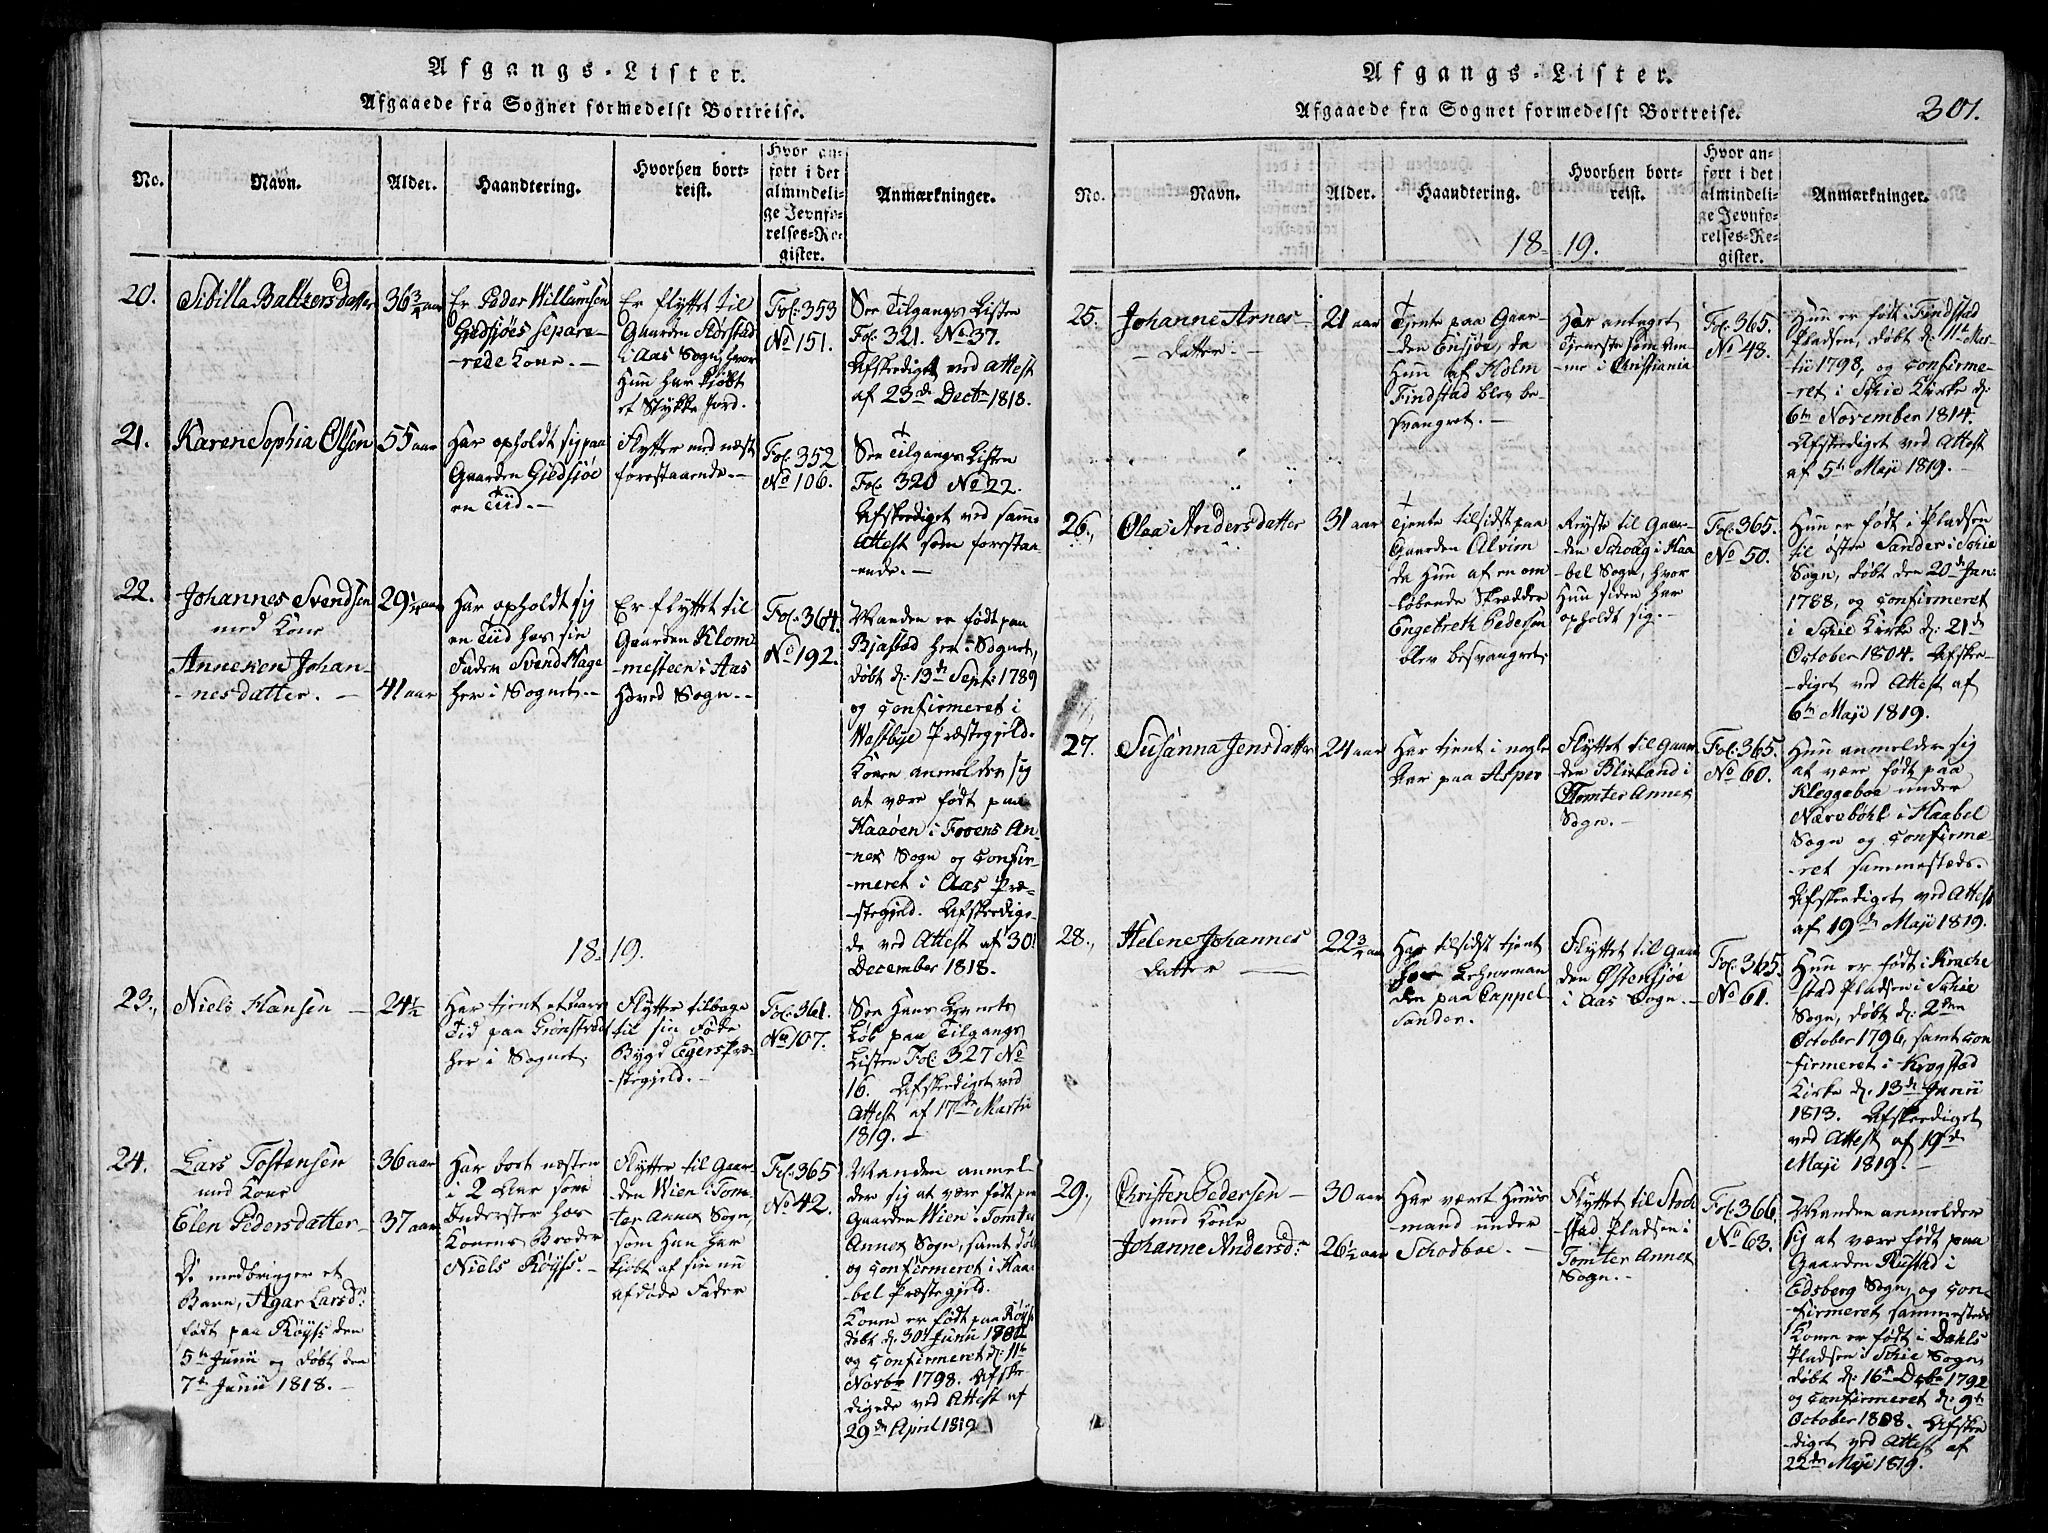 Afgangs-Lister.
Afgaaede fra Sognet formedelst Bortreise.
No.
Navn.
Alder.
Haandtering.
Hvorhen bort-
reist.
Hvor an-
ført i det
almindeli-
ge Jevnfø-
relses-Re-
gister.
Anmærkninger.
20.
Sibilla Baltzersdatter
36 3/4 aar
Er Peder Willumsen
Giedsjøes separe-
rede Kone. -
Er flyttet til
Gaarden Størstad
i Aas Sogn, hvor
Hun har kjøbt
et Stykke Jord.
Fol: 353
No 151.
See Tilgangs Listen
Fol: 321. No 37.
Afskediget ved Attest
af 23de Decbr 1818.
21.
Karen Sophia Olsen
55 aar
Har opholdt sig paa
Gaarden Giedsjøe
en Tiid. -
Flytter med næst
forestaaende. -
Fol: 352
No 106.
See Tilgangs Listen
Fol: 320 No 22.
Afskediget ved samme
Attest som forestaa-
ende. -
22.
Johannes Svendsen
med Kone
Anneken Johan-
-nesdatter. -
29 1/4 aar
41 aar
Har opholdt sig
en Tiid hos sin
Fader Svend Hage
her i Sognet. -
Er flyttet til
Gaarden Klom
-mesteen i Aas
Hoved Sogn. -
Fol: 364.
No 192.
Manden er født paa
Bjastad her i Sognet,
døbt d: 13de Sept: 1789
og confirmeret i
Westbye Præstegjeld.
Konen anmelder sig
at være født paa
Haaøen i Froens An-
-nex Sogn og confir-
-meret i Aas Præ-
-stegjeld. Afskedige-
de ved Attest af 30!
December 1818.
18 19.
23.,
Niels Hansen -
24 1/2
Har tjent et Aars
Tid paa Grønstvedt
her i Sognet.
Flytter tilbage
til sin Føde
Bygd Egers Præ-
-stegjeld. -
Fol: 361.
No 107.
See Hans Levnets
Løb paa Tilgangs
Listen Fol: 327 No
16. Afskediget ved
Attest af 17de Martii
1819. -
24.
Lars Tostensen
med Kone
Elen Pedersdatter -
De medbringer et
Barn, Agar Larsdr:
født paa Røyss den
5te Junii og døbt den
7de Junii 1818. -
36 aar
37 aar
Har boet næsten
i 2 Aar som
Inderster hos
Konens Broder
Niels Røyss. -
Flytter til Gaar-
den Wien i Tom-
ter Annex Sogn,
som Han har
kjøbt af sin nu
afdøde Fader
Fol: 365
No 42.
Manden anmel-
der sig at være født paa
Gaarden Wien i Tomter
Annex Sogn, samt døbt
og confirmeret i Haa-
bel Præstegjeld.
Konen er født paa Røyss
døbt d: 30! Junii
og confirmeret d: 11te
Novbr 1798. Afske
digede ved Attest af
29de April 1819
Afgangs-Lister.
Afgaaede fra Sognet formedelst Bortreise.
301.
No.
Navn.
Alder.
Haandtering.
Hvorhen bort-
reist.
Hvor an-
ført i det
almindeli-
ge Jevnfø-
relses-Re-
gister.
Anmærkninger.
18 19.
25.
Johanne Arnes-
- datter. -
21 aar
Tjente paa Gaar-
den Ensjøe, da
Hun af Holm
Findstad blev be-
svangret. -
Har antaget
Tjeneste som Am-
me i Christiania
Fol: 365.
No 48.
Hun er født i Findstad
Pladsen, døbt d: 11te Mar-
tii 1798, og confirme-
-ret i Schie Kirke d:
6te November 1814.
Afskediget ved Attest
af 5te Maji 1819. -
26.,
Olaa Andersdatter
31 aar
Tjente tilsidst paa
Gaarden Alvim
da Hun af en om
løbende Skrædder
Engebreth Pedersen
blev besvangret.
Reyste til Gaar-
den Schoug i Haa
bel Sogn, hvor
Hun siden har
opholdt sig. -
Fol: 365.
No 50.
Hun er født i Pladsen
til østre Sander i Schie
Sogn, døbt den 20de Jan:
1788, og confirmeret
i Schie Kirke d: 21de
October 1804. Afske-
-diget ved Attest af
6te Maji 1819.
27.
Susanna Jensdatter
24 aar
Har tjent i nogle
Aar paa Asper
Flyttet til Gaar
den Blixland i
Tomter Annex
Sogn. -
Fol: 365.
No 60.
Hun anmelder sig
at være født paa
Kleggeboe under
Nærebøhl i Haabel
Sogn og confirme
-ret sammestæds.
Afskediget ved Attest
af 19de Maji 1819.
28.,
Helene Johannes
datter -
22 3/4 aar
Har tilsidst tjent
hos Lehnsman
den paa Cappel
Sander.
Flyttet til Gaar
den Østensjøe
i Aas Sogn. -
Fol: 365.
No 61.
Hun er født i Krache
stad Pladsen i Schie
Sogn, døbt d: 2den
October 1796, samt con
firmeret i Krogstad
Kirke d: 13de Junii
1813. Afskediget
ved Attest af 19de
Maji 1819. -
29.,
Christen Pedersen -
med Kone
Johanne Andersdr:
30 aar
26 1/2 aar
Har været Huus
mand under
Schodboe. -
Flyttet til
stad Pladsen i
Tomter Annex
Sogn. -
Fol: 366.
No 63.
Manden anmelder
sig at være født paa
Gaarden Rustad i
Edsberg Sogn, og con-
firmeret sammesteds
Konen er født i Dahls
Pladsen i Schie Sogn,
døbt d: 16de Decbr 1792
og confirmeret d: 9de
October 1808. Afske
-diget ved Attest af
22de Maji 1819.